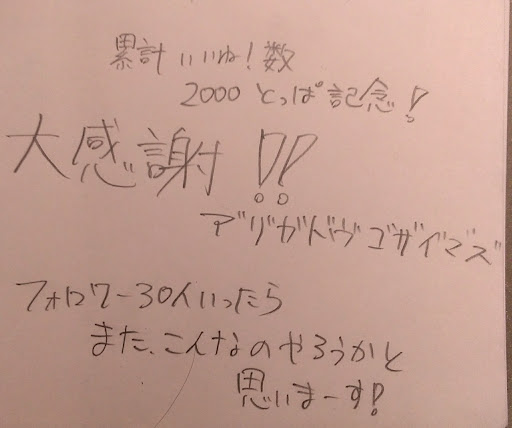 累計いいね!数
2000とっぱ記念!
大感謝!!
ア゛リ゛ガドヴゴザイ゛マ゛ズ
フォロワー30人いったら
また、こんなのやろうかと
思いまーす!